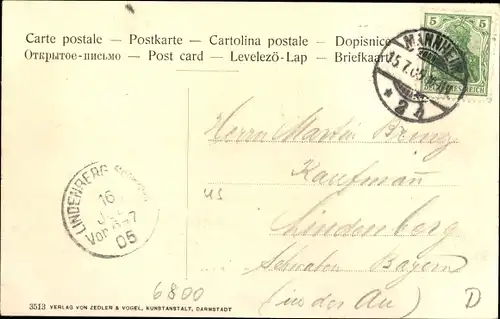 Carte postale — Postkarte — Cartolina postale — Dopisnice
Открытое-письмо — Post card — Levelező-Lap — Briefkaart
5 5
DEUTSCHES REICH
MANNHEIM
15.7.05
* 2 h
Herrn Martin
Kaufmann
Lindenberg
Schwaben Bayern
(in der Au)
LINDENBERG
16
JUL
Vor. 6-7
05
us
6800
D
3513 VERLAG VON ZEDLER & VOGEL, KUNSTANSTALT, DARMSTADT